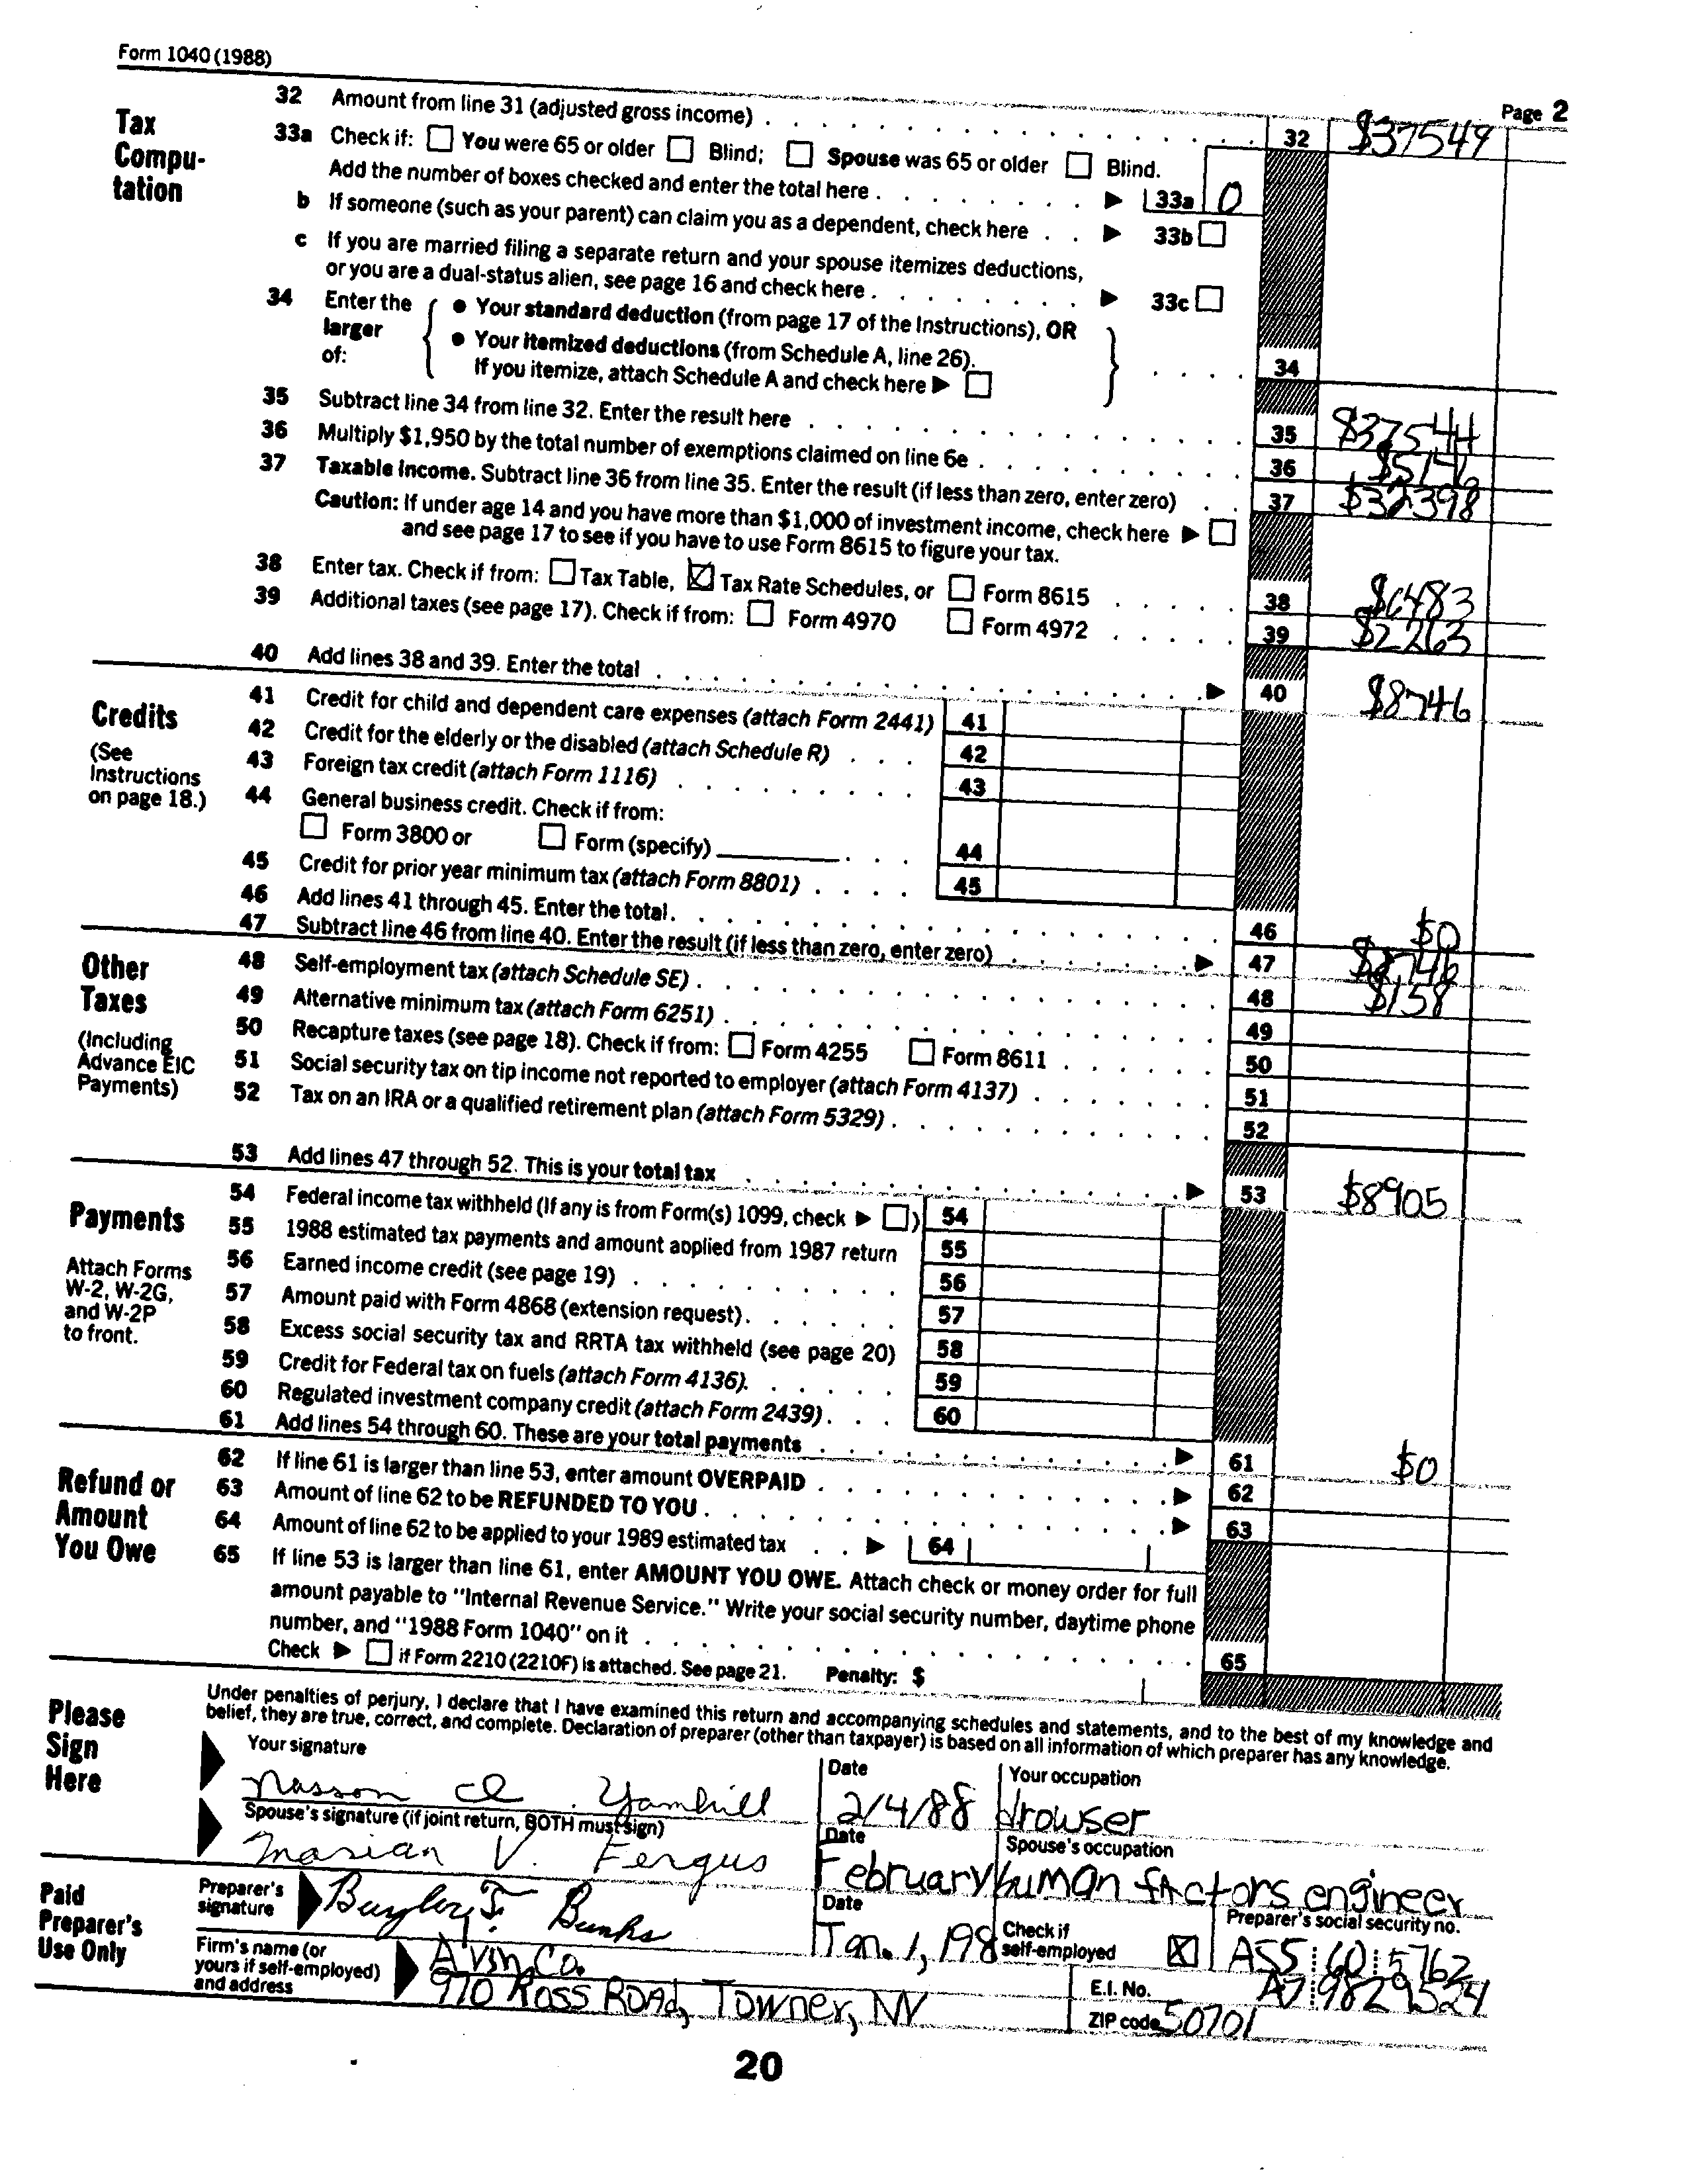 Form 1040 (1988)
Page 2
Tax Compu- tation
32 Amount from line 31 (adjusted gross income) 32 $37549
33a Check if: You were 65 or older Blind; Spouse was 65 or older Blind.
Add the number of boxes checked and enter the total here 33a 0
b If someone (such as your parent) can claim you as a dependent, check here 33b
c If you are married filing a separate return and your spouse itemizes deductions,
or you are a dual-status alien, see page 16 and check here 33c
34 Enter the larger of: { • Your standard deduction (from page 17 of the Instructions), OR
• Your itemized deductions (from Schedule A, line 26).
If you itemize, attach Schedule A and check here } 34
35 Subtract line 34 from line 32. Enter the result here 35 $37544
36 Multiply $1,950 by the total number of exemptions claimed on line 6e 36 $5146
37 Taxable income. Subtract line 36 from line 35. Enter the result (if less than zero, enter zero) 37 $32398
Caution: If under age 14 and you have more than $1,000 of investment income, check here
and see page 17 to see if you have to use Form 8615 to figure your tax.
38 Enter tax. Check if from: Tax Table, Tax Rate Schedules, or Form 8615 38 $6483
39 Additional taxes (see page 17). Check if from: Form 4970 Form 4972 39 $2263
40 Add lines 38 and 39. Enter the total 40 $8746
Credits
(See Instructions on page 18.)
41 Credit for child and dependent care expenses (attach Form 2441) 41
42 Credit for the elderly or the disabled (attach Schedule R) 42
43 Foreign tax credit (attach Form 1116) 43
44 General business credit. Check if from:
Form 3800 or Form (specify) 44
45 Credit for prior year minimum tax (attach Form 8801) 45
46 Add lines 41 through 45. Enter the total 46 $0
47 Subtract line 46 from line 40. Enter the result (if less than zero, enter zero) 47 $8746
Other Taxes
(Including Advance EIC Payments)
48 Self-employment tax (attach Schedule SE) 48 $158
49 Alternative minimum tax (attach Form 6251) 49
50 Recapture taxes (see page 18). Check if from: Form 4255 Form 8611 50
51 Social security tax on tip income not reported to employer (attach Form 4137) 51
52 Tax on an IRA or a qualified retirement plan (attach Form 5329) 52
53 Add lines 47 through 52. This is your total tax 53 $8905
Payments
Attach Forms W-2, W-2G, and W-2P to front.
54 Federal income tax withheld (If any is from Form(s) 1099, check ) 54
55 1988 estimated tax payments and amount applied from 1987 return 55
56 Earned income credit (see page 19) 56
57 Amount paid with Form 4868 (extension request) 57
58 Excess social security tax and RRTA tax withheld (see page 20) 58
59 Credit for Federal tax on fuels (attach Form 4136) 59
60 Regulated investment company credit (attach Form 2439) 60
61 Add lines 54 through 60. These are your total payments 61 $0
Refund or Amount You Owe
62 If line 61 is larger than line 53, enter amount OVERPAID 62
63 Amount of line 62 to be REFUNDED TO YOU 63
64 Amount of line 62 to be applied to your 1989 estimated tax 64
65 If line 53 is larger than line 61, enter AMOUNT YOU OWE. Attach check or money order for full
amount payable to "Internal Revenue Service." Write your social security number, daytime phone
number, and "1988 Form 1040" on it 65
Check if Form 2210 (2210F) is attached. See page 21. Penalty: $
Please Sign Here
Under penalties of perjury, I declare that I have examined this return and accompanying schedules and statements, and to the best of my knowledge and
belief, they are true, correct, and complete. Declaration of preparer (other than taxpayer) is based on all information of which preparer has any knowledge.
Your signature Date Your occupation
Nasson Yamhill 2/4/88 drowser
Spouse's signature (if joint return, BOTH must sign) Date Spouse's occupation
Marian V. Fergus February human factors engineer
Paid Preparer's Use Only
Preparer's signature Bunks Date Jan. 1, 198 Check if self-employed X Preparer's social security no. ASS 60 5762
Firm's name (or yours if self-employed) and address Avsn Co. E.I. No. A7 9829524
970 Ross Road, Towner, NY ZIP code 50701
20